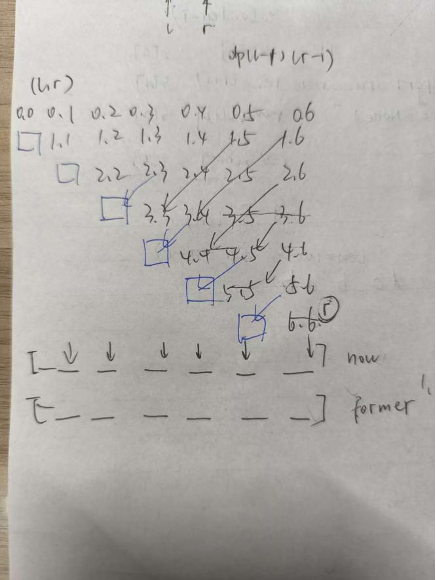 l r
dp(l-1)(r-1)
(l,r)
0.0 0.1 0.2 0.3 0.4 0.5 0.6
1.1 1.2 1.3 1.4 1.5 1.6
2.2 2.3 2.4 2.5 2.6
3.3 3.4 3.5 3.6
4.4 4.5 4.6
5.5 5.6
6.6 r
now
former